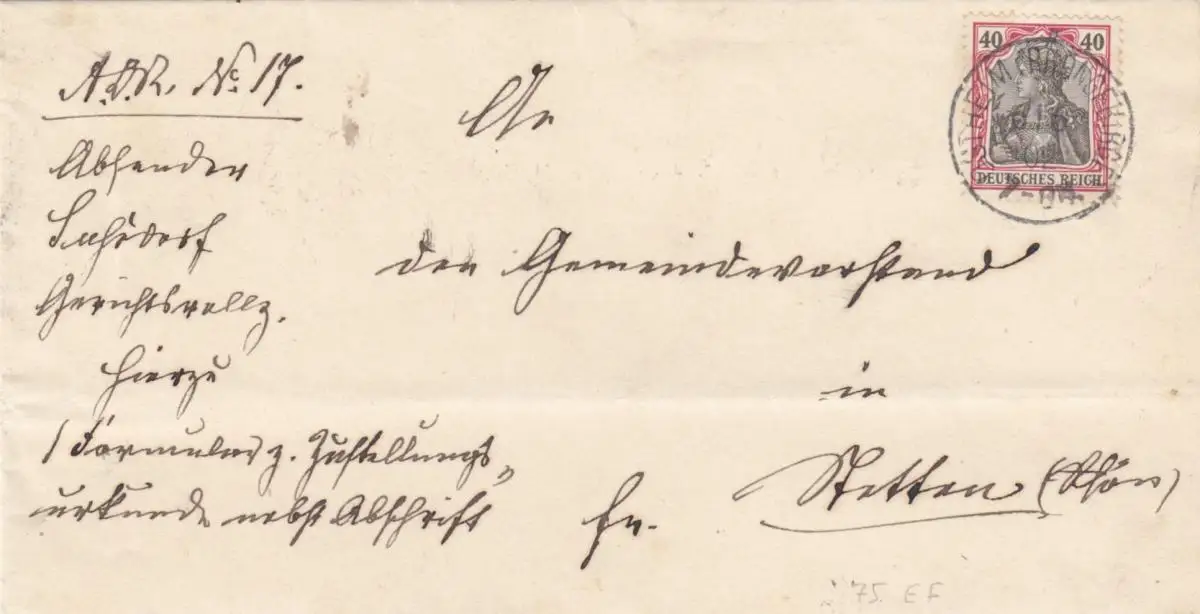 A.D.R. Nc 17.
Absender
Gerichtsvollz.
hierzu
1 Formular z. Zustellungs„
urkunde nebst Abschrift
An
den Gemeindevorstand
in
Stetten (Rhön)
Fr.
40 40
DEUTSCHES REICH
75 EF